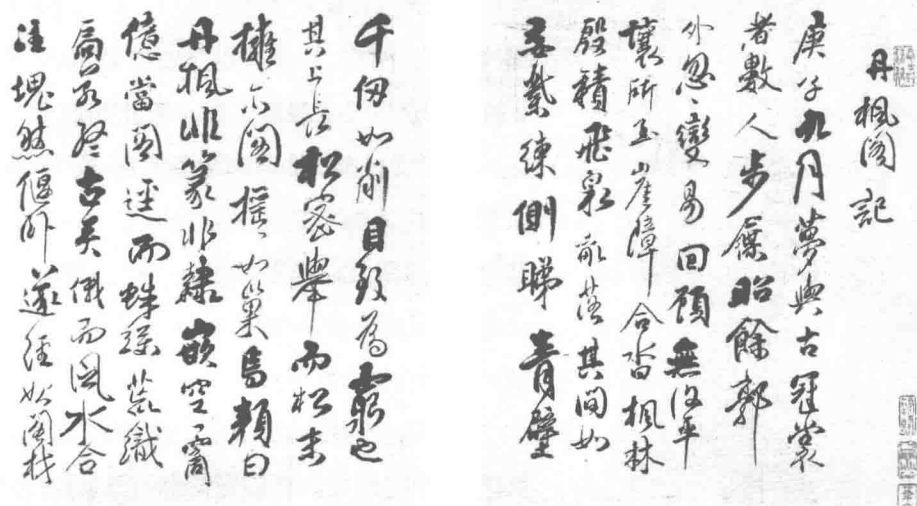 丹楓閣記
庚子九月夢與古冠裳
者數人步屧昭餘郭
外忽忽變易回顧無復平
壤所至崖障合沓楓林
殷積飛泉亂落其間如
委縈練側睇青壁
千仞如削目致為窮也
其上長松密舉而松末
擁閣搖搖如巢焉顏曰
丹楓非篆非隸嵌空一窗
億當閣逕而蛛荒織
扃若終古矣俄而風水合
注塊然偃卧遂經始閣材